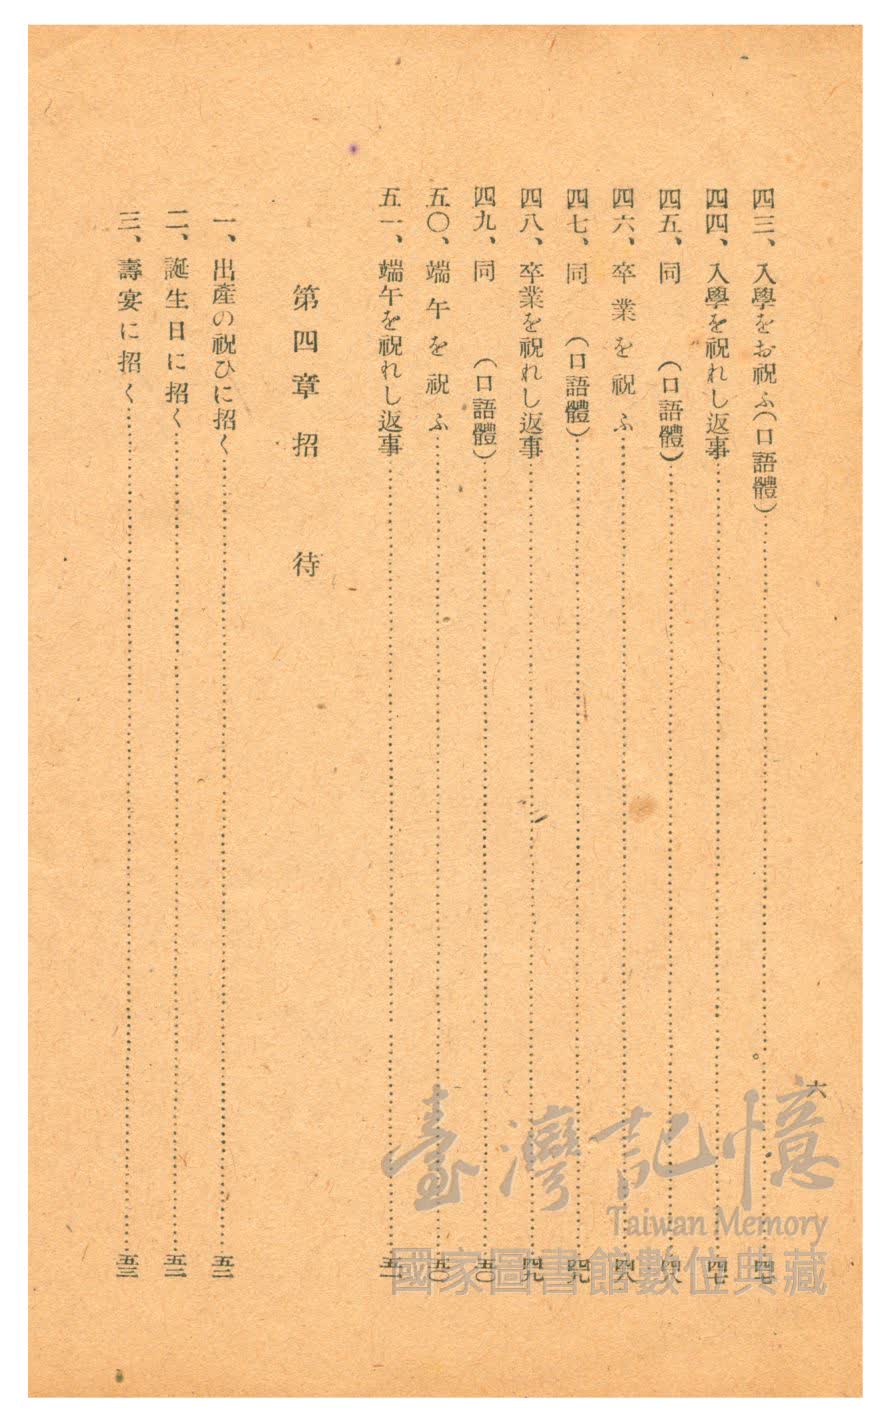 六
四三、入學をお祝ふ(口語體)……四七
四四、入學を祝れし返事……四七
四五、同　(口語體)……四八
四六、卒業を祝ふ……四八
四七、同　(口語體)……四九
四八、卒業を祝れし返事……四九
四九、同　(口語體)……五〇
五〇、端午を祝ふ……五〇
五一、端午を祝れし返事……五一
第四章 招待
一、出產の祝ひに招く……五二
二、誕生日に招く……五二
三、壽宴に招く……五三
臺灣記憶
Taiwan Memory
國家圖書館數位典藏